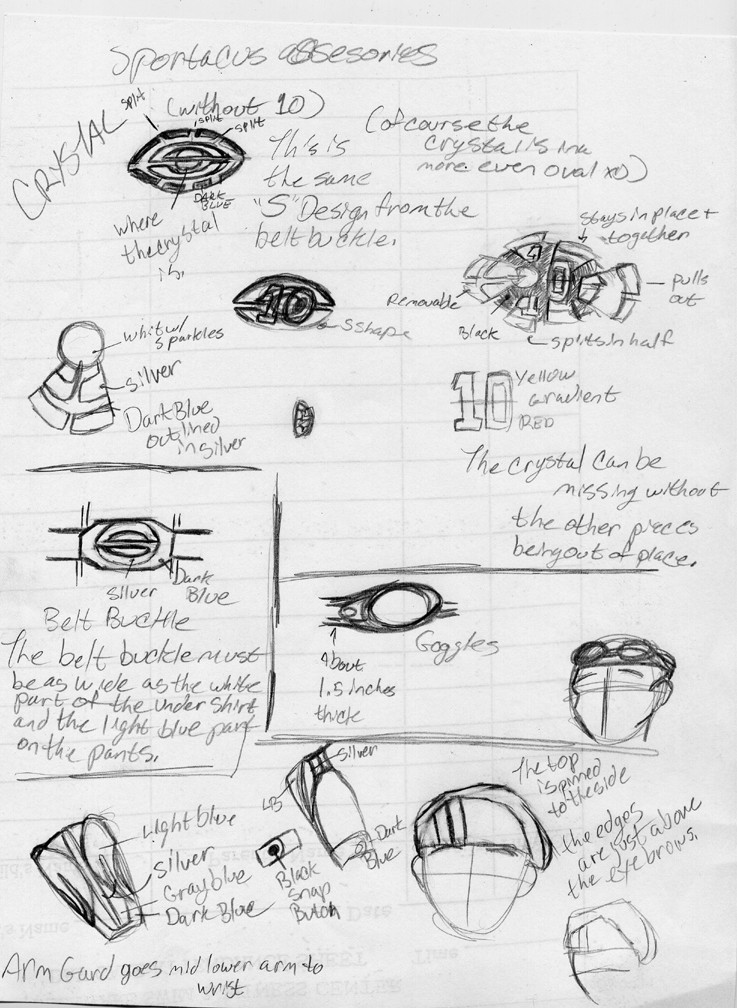 Sportacus assesories
CRYSTAL
split
(without 10)
split
split
DARK
BLUE
where
the crystal
is.
This is
the same
"S" Design from the
belt buckle.
(of course the
crystal is in a
more even oval xD)
stays in place +
together
pulls
out
Removable
Black
splits in half
10
S shape
whit w/
sparkles
silver
Dark Blue
outlined
in silver
10
Yellow
Gradient
RED
The crystal can be
missing without
the other pieces
being out of place.
silver
Dark
Blue
Belt Buckle
The belt buckle must
be as wide as the white
part of the under shirt
and the light blue part
on the pants.
Goggles
About
1.5 inches
thick
Light blue
silver
Gray blue
Dark Blue
silver
LB
Dark
Blue
Black
Snap
Button
The top
is pinned
to the side
the edges
are just above
the eyebrows.
Arm Gard goes mid lower arm to
wrist